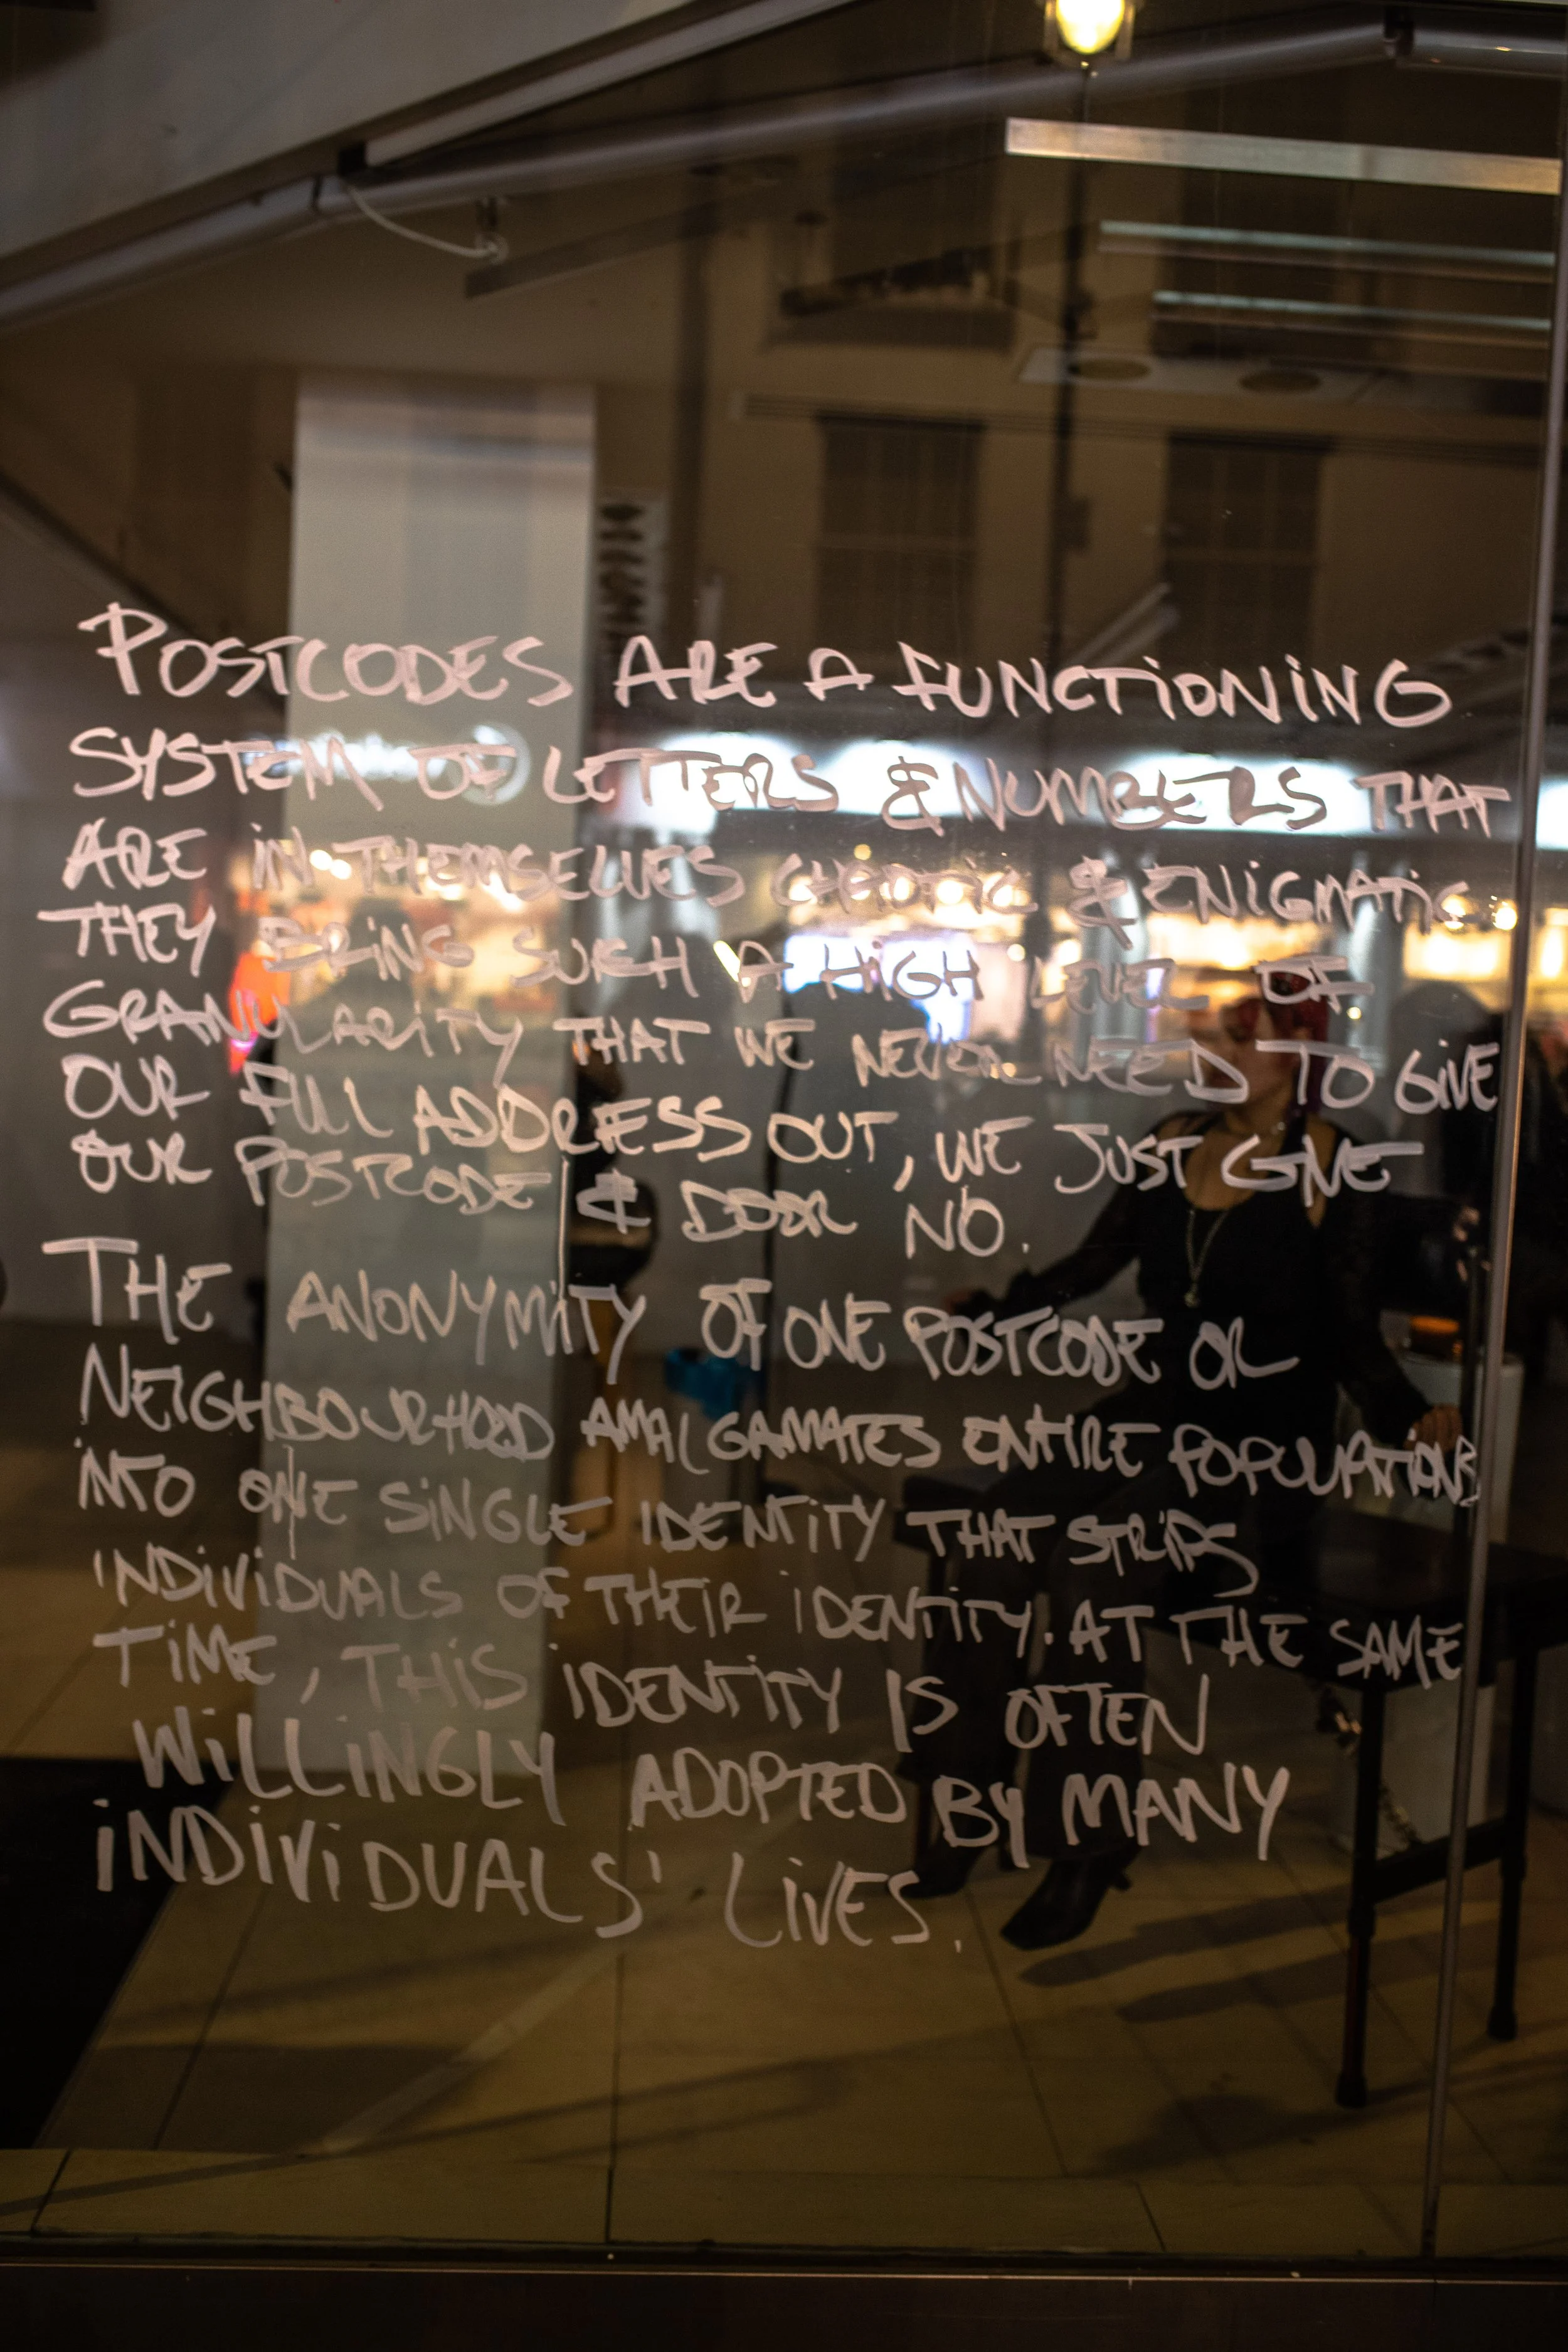 POSTCODES ARE A FUNCTIONING
SYSTEM OF LETTERS & NUMBERS THAT
ARE IN THEMSELVES CHAOTIC & ENIGMATIC.
THEY BRING SUCH A HIGH LEVEL OF
GRANULARITY THAT WE NEVER NEED TO GIVE
OUR FULL ADDRESS OUT, WE JUST GIVE
OUR POSTCODE & DOOR NO.
THE ANONYMITY OF ONE POSTCODE OR
NEIGHBOURHOOD AMALGAMATES ENTIRE POPULATIONS
INTO ONE SINGLE IDENTITY THAT STRIPS
INDIVIDUALS OF THEIR IDENTITY. AT THE SAME
TIME, THIS IDENTITY IS OFTEN
WILLINGLY ADOPTED BY MANY
INDIVIDUALS' LIVES.